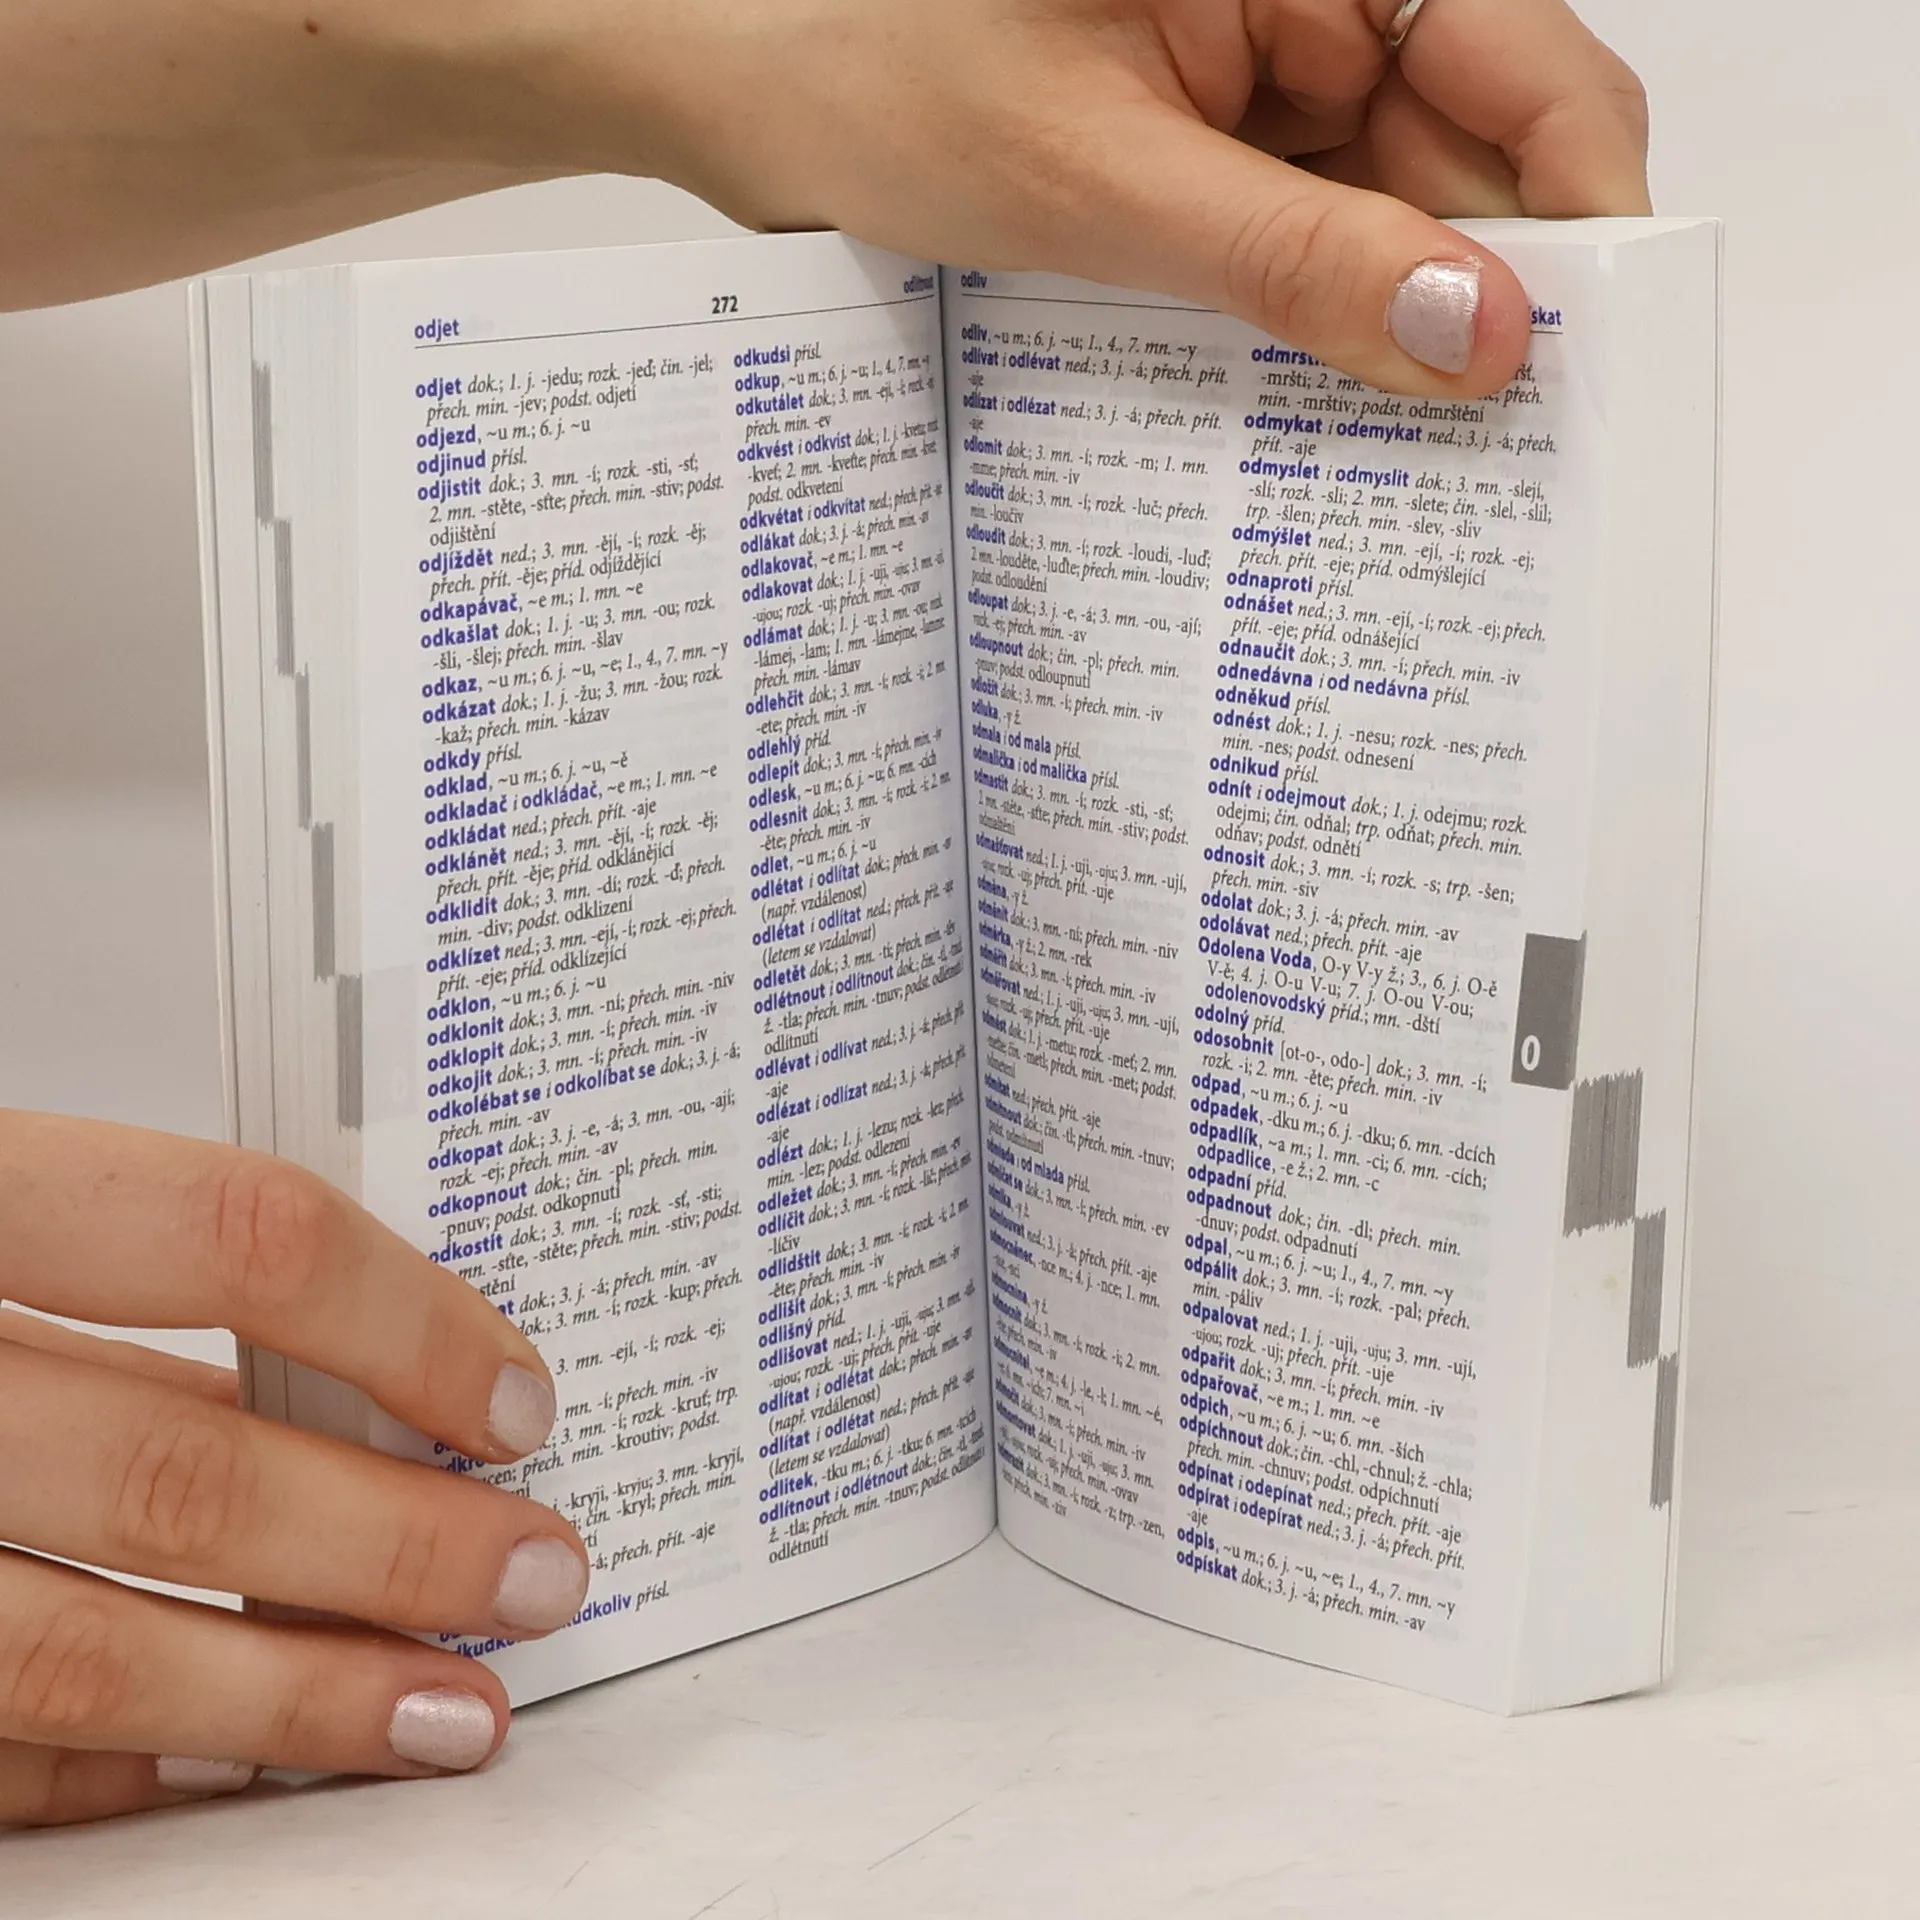 odjet
272
odlítnout
odjet dok.; 1. j. -jedu; rozk. -jeď; čin. -jel;
přech. min. -jev; podst. odjetí
odjezd, ~u m.; 6. j. ~u
odjinud přísl.
odjistit dok.; 3. mn. -í; rozk. -sti, -sť;
2. mn. -stěte, -sťte; přech. min. -stiv; podst.
odjištění
odjíždět ned.; 3. mn. -ějí, -í; rozk. -ěj;
přech. přít. -ěje; příd. odjíždějící
odkapávač, ~e m.; 1. mn. ~e
odkašlat dok.; 1. j. -u; 3. mn. -ou; rozk.
-šli, -šlej; přech. min. -šlav
odkaz, ~u m.; 6. j. ~u, ~e; 1., 4., 7. mn. ~y
odkázat dok.; 1. j. -žu; 3. mn. -žou; rozk.
-kaž; přech. min. -kázav
odkdy přísl.
odklad, ~u m.; 6. j. ~u, ~ě
odkladač i odkládač, ~e m.; 1. mn. ~e
odkládat ned.; přech. přít. -aje
odklánět ned.; 3. mn. -ějí, -í; rozk. -ěj;
přech. přít. -ěje; příd. odklánějící
odklidit dok.; 3. mn. -dí; rozk. -ď; přech.
min. -div; podst. odklizení
odklízet ned.; 3. mn. -ejí, -í; rozk. -ej; přech.
přít. -eje; příd. odklízející
odklon, ~u m.; 6. j. ~u
odklonit dok.; 3. mn. -ní; přech. min. -niv
odklopit dok.; 3. mn. -í; přech. min. -iv
odkojit dok.; 3. mn. -í; přech. min. -iv
odkolébat se i odkolíbat se dok.; 3. j. -á;
přech. min. -av
odkopat dok.; 3. j. -e, -á; 3. mn. -ou, -ají;
rozk. -ej; přech. min. -av
odkopnout dok.; čin. -pl; přech. min.
-pnuv; podst. odkopnutí
odkostit dok.; 3. mn. -í; rozk. -sť, -sti;
mn. -sťte, -stěte; přech. min. -stiv; podst.
dok.; 3. j. -á; přech. min. -av
3. mn. -í; rozk. -kup; přech.
3. mn. -ejí, -í; rozk. -ej;
mn. -í; přech. min. -iv
3. mn. -í; rozk. -kruť; trp.
přech. min. -kroutiv; podst.
-kryji, -kryju; 3. mn. -kryjí,
čin. -kryl; přech. min.
-á; přech. přít. -aje
přísl.
odkudsi přísl.
odkup, ~u m.; 6. j. ~u; 1., 4., 7. mn. ~y
odkutálet dok.; 3. mn. -ejí, -í; rozk. -ej
přech. min. -ev
odkvést i odkvíst dok.; 1. j. -kvetu; rozk.
-kveť; 2. mn. -kveťte; přech. min. -kvet;
podst. odkvetení
odkvétat i odkvítat ned.; přech. přít. -aje
odlákat dok.; 3. j. -á; přech. min. -av
odlakovač, ~e m.; 1. mn. ~e
odlakovat dok.; 1. j. -uji, -uju; 3. mn. -ují,
-ujou; rozk. -uj; přech. min. -ovav
odlámat dok.; 1. j. -u; 3. mn. -ou; rozk.
-lámej, -lam; 1. mn. -lámejme, -lamme
přech. min. -lámav
odlehčit dok.; 3. mn. -í; rozk. -i; 2. mn.
-ete; přech. min. -iv
odlehlý příd.
odlepit dok.; 3. mn. -í; přech. min. -iv
odlesk, ~u m.; 6. j. ~u; 6. mn. -cích
odlesnit dok.; 3. mn. -í; rozk. -i; 2. mn.
-ěte; přech. min. -iv
odlet, ~u m.; 6. j. ~u
odlétat i odlítat dok.; přech. min. -av
(např. vzdálenost)
odlétat i odlítat ned.; přech. přít. -aje
(letem se vzdalovat)
odletět dok.; 3. mn. -tí; přech. min. -těv
odlétnout i odlítnout dok.; čin. -tl, -tnul
ž. -tla; přech. min. -tnuv; podst. odlétnutí
odlítnutí
odlévat i odlívat ned.; 3. j. -á; přech. přít.
-aje
odlézat i odlízat ned.; 3. j. -á; přech. přít.
-aje
odlézt dok.; 1. j. -lezu; rozk. -lez; přech.
min. -lez; podst. odlezení
odležet dok.; 3. mn. -í; přech. min. -ev
odlíčit dok.; 3. mn. -í; rozk. -lič; přech. min.
-líčiv
odlidštit dok.; 3. mn. -í; rozk. -i; 2. mn.
-ěte; přech. min. -iv
odlišit dok.; 3. mn. -í; přech. min. -iv
odlišný příd.
odlišovat ned.; 1. j. -uji, -uju; 3. mn. -ují,
-ujou; rozk. -uj; přech. přít. -uje
odlítat i odlétat dok.; přech. min. -av
(např. vzdálenost)
odlítat i odlétat ned.; přech. přít. -aje
(letem se vzdalovat)
odlitek, -tku m.; 6. j. -tku; 6. mn. -tcích
odlítnout i odlétnout dok.; čin. -tl, -tnul
ž. -tla; přech. min. -tnuv; podst. odlítnutí
odlétnutí
odliv
odliv, ~u m.; 6. j. ~u; 1., 4., 7. mn. ~y
odlívat i odlévat ned.; 3. j. -á; přech. přít.
-aje
odlízat i odlézat ned.; 3. j. -á; přech. přít.
-aje
odlomit dok.; 3. mn. -í; rozk. -m; 1. mn.
-mme; přech. min. -iv
odloučit dok.; 3. mn. -í; rozk. -luč; přech.
min. -loučiv
odloudit dok.; 3. mn. -í; rozk. -loudi, -luď;
2. mn. -louděte, -luďte; přech. min. -loudiv;
podst. odloudění
odloupat dok.; 3. j. -e, -á; 3. mn. -ou, -ají;
rozk. -ej; přech. min. -av
odloupnout dok.; čin. -pl; přech. min.
-pnuv; podst. odloupnutí
odložit dok.; 3. mn. -í; přech. min. -iv
odluka, -y ž.
odmala i od mala přísl.
odmalička i od malička přísl.
odmastit dok.; 3. mn. -í; rozk. -sti, -sť;
2. mn. -stěte, -sťte; přech. min. -stiv; podst.
odmaštění
odmašťovat ned.; 1. j. -uji, -uju; 3. mn. -ují,
-ujou; rozk. -uj; přech. přít. -uje
odměna, -y ž.
odměnit dok.; 3. mn. -ní; přech. min. -niv
odměrka, -y ž.; 2. mn. -rek
odměřit dok.; 3. mn. -í; přech. min. -iv
odměřovat ned.; 1. j. -uji, -uju; 3. mn. -ují,
-ujou; rozk. -uj; přech. přít. -uje
odmést dok.; 1. j. -metu; rozk. -meť; 2. mn.
-meťte; čin. -metl; přech. min. -met; podst.
odmetení
odmítat ned.; přech. přít. -aje
odmítnout dok.; čin. -tl; přech. min. -tnuv;
podst. odmítnutí
odmlada i od mlada přísl.
odmlčet se dok.; 3. mn. -í; přech. min. -ev
odmlka, -y ž.
odmlouvat ned.; 3. j. -á; přech. přít. -aje
odmocněnec, -nce m.; 4. j. -nce; 1. mn.
odmocnina, -y ž.
odmocnit dok.; 3. mn. -í; rozk. -i; 2. mn.
-ěte; přech. min. -iv
odmocnitel, ~e m.; 4. j. ~le, ~l; 1. mn. ~é,
odmočit dok.; 3. mn. -í; přech. min. -iv
odmontovat dok.; 1. j. -uji, -uju; 3. mn.
-ují, -ujou; rozk. -uj; přech. min. -ovav
odmrazit dok.; 3. mn. -í; rozk. -z; trp. -zen,
přech. min. -ziv
-mršti; 2. mn.
přech.
min. -mrštiv; podst. odmrštění
odmykat i odemykat ned.; 3. j. -á; přech.
přít. -aje
odmyslet i odmyslit dok.; 3. mn. -slejí,
-slí; rozk. -sli; 2. mn. -slete; čin. -slel, -slil;
trp. -šlen; přech. min. -slev, -sliv
odmýšlet ned.; 3. mn. -ejí, -í; rozk. -ej;
přech. přít. -eje; příd. odmýšlející
odnaproti přísl.
odnášet ned.; 3. mn. -ejí, -í; rozk. -ej; přech.
přít. -eje; příd. odnášející
odnaučit dok.; 3. mn. -í; přech. min. -iv
odnedávna i od nedávna přísl.
odněkud přísl.
odnést dok.; 1. j. -nesu; rozk. -nes; přech.
min. -nes; podst. odnesení
odnikud přísl.
odnít i odejmout dok.; 1. j. odejmu; rozk.
odejmi; čin. odňal; trp. odňat; přech. min.
odňav; podst. odnětí
odnosit dok.; 3. mn. -í; rozk. -s; trp. -šen;
přech. min. -siv
odolat dok.; 3. j. -á; přech. min. -av
odolávat ned.; přech. přít. -aje
Odolena Voda, O-y V-y ž.; 3., 6. j. O-ě
V-ě; 4. j. O-u V-u; 7. j. O-ou V-ou;
odolenovodský příd.; mn. -dští
odolný příd.
odosobnit [ot-o-, odo-] dok.; 3. mn. -í;
rozk. -i; 2. mn. -ěte; přech. min. -iv
odpad, ~u m.; 6. j. ~u
odpadek, -dku m.; 6. j. -dku; 6. mn. -dcích
odpadlík, ~a m.; 1. mn. -ci; 6. mn. -cích;
odpadlice, -e ž.; 2. mn. -c
odpadní příd.
odpadnout dok.; čin. -dl; přech. min.
-dnuv; podst. odpadnutí
odpal, ~u m.; 6. j. ~u; 1., 4., 7. mn. ~y
odpálit dok.; 3. mn. -í; rozk. -pal; přech.
min. -páliv
odpalovat ned.; 1. j. -uji, -uju; 3. mn. -ují,
-ujou; rozk. -uj; přech. přít. -uje
odpařit dok.; 3. mn. -í; přech. min. -iv
odpařovač, ~e m.; 1. mn. ~e
odpich, ~u m.; 6. j. ~u; 6. mn. -ších
odpíchnout dok.; čin. -chl, -chnul; ž. -chla;
přech. min. -chnuv; podst. odpíchnutí
odpínat i odepínat ned.; přech. přít. -aje
odpírat i odepírat ned.; 3. j. -á; přech. přít.
-aje
odpis, ~u m.; 6. j. ~u, ~e; 1., 4., 7. mn. ~y
odpískat dok.; 3. j. -á; přech. min. -av
O